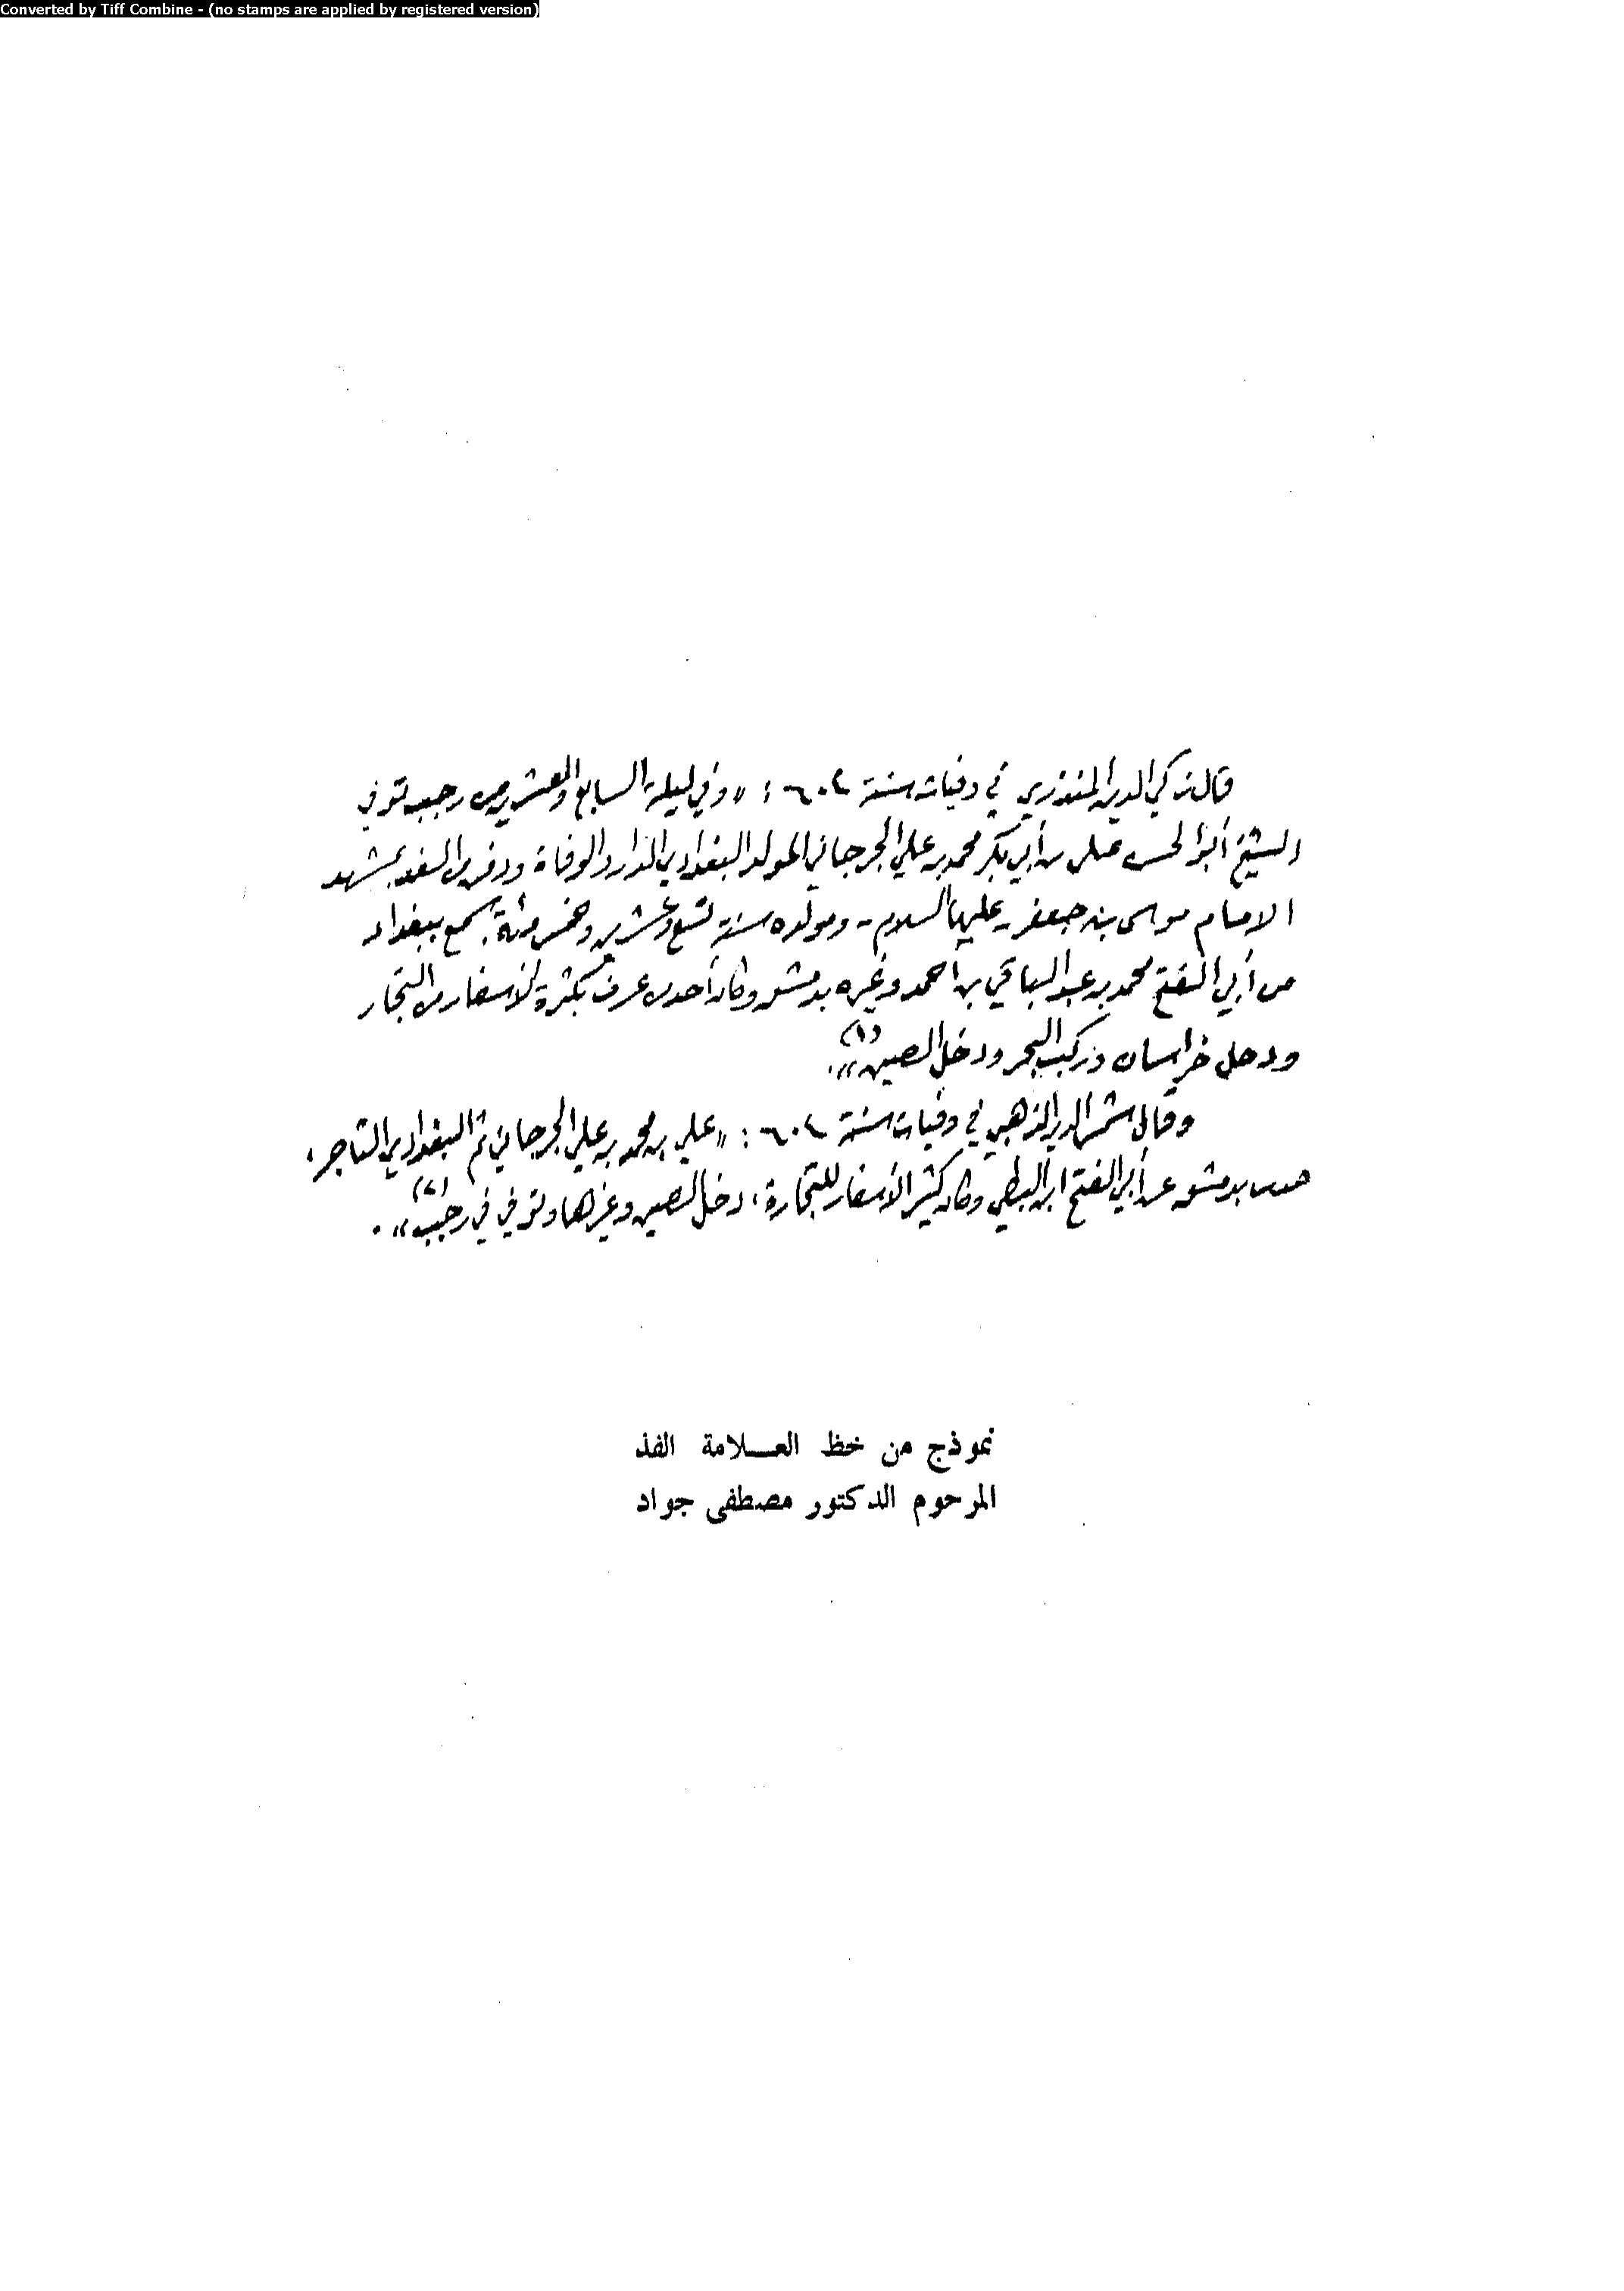 Converted by Tiff Combine - (no stamps are applied by registered version)
قال زكي الدين المنذري في وفيات سنة ٦٠٤ : «وفي ليلة السابع والعشرين من رجب توفي
الشيخ أبو الحسن علي بن أبي بكر محمد بن علي الجرجاني المولد البغدادي الدار والوفاة ودفن من الغد بمشهد
الامام موسى بن جعفر - عليهما السلام - ومولده سنة تسع وعشرين وخمس مئة. سمع ببغداد
من أبي الفتح محمد بن عبد الباقي بن احمد وغيره بدمشق وكان أحد من عرف بكثرة الأسفار من التجار
ودخل خراسان وركب البحر ودخل الصين»(١).
وقال شمس الدين الذهبي في وفيات سنة ٦٠٤ : «علي بن محمد بن علي الجرجاني ثم البغدادي التاجر،
حدث بدمشق عن أبي الفتح ابن البطي وكان كثير الأسفار للتجارة، دخل الصين وغيرها وتوفي في رجب»(٢).
نموذج من خط العلامة الفذ
المرحوم الدكتور مصطفى جواد